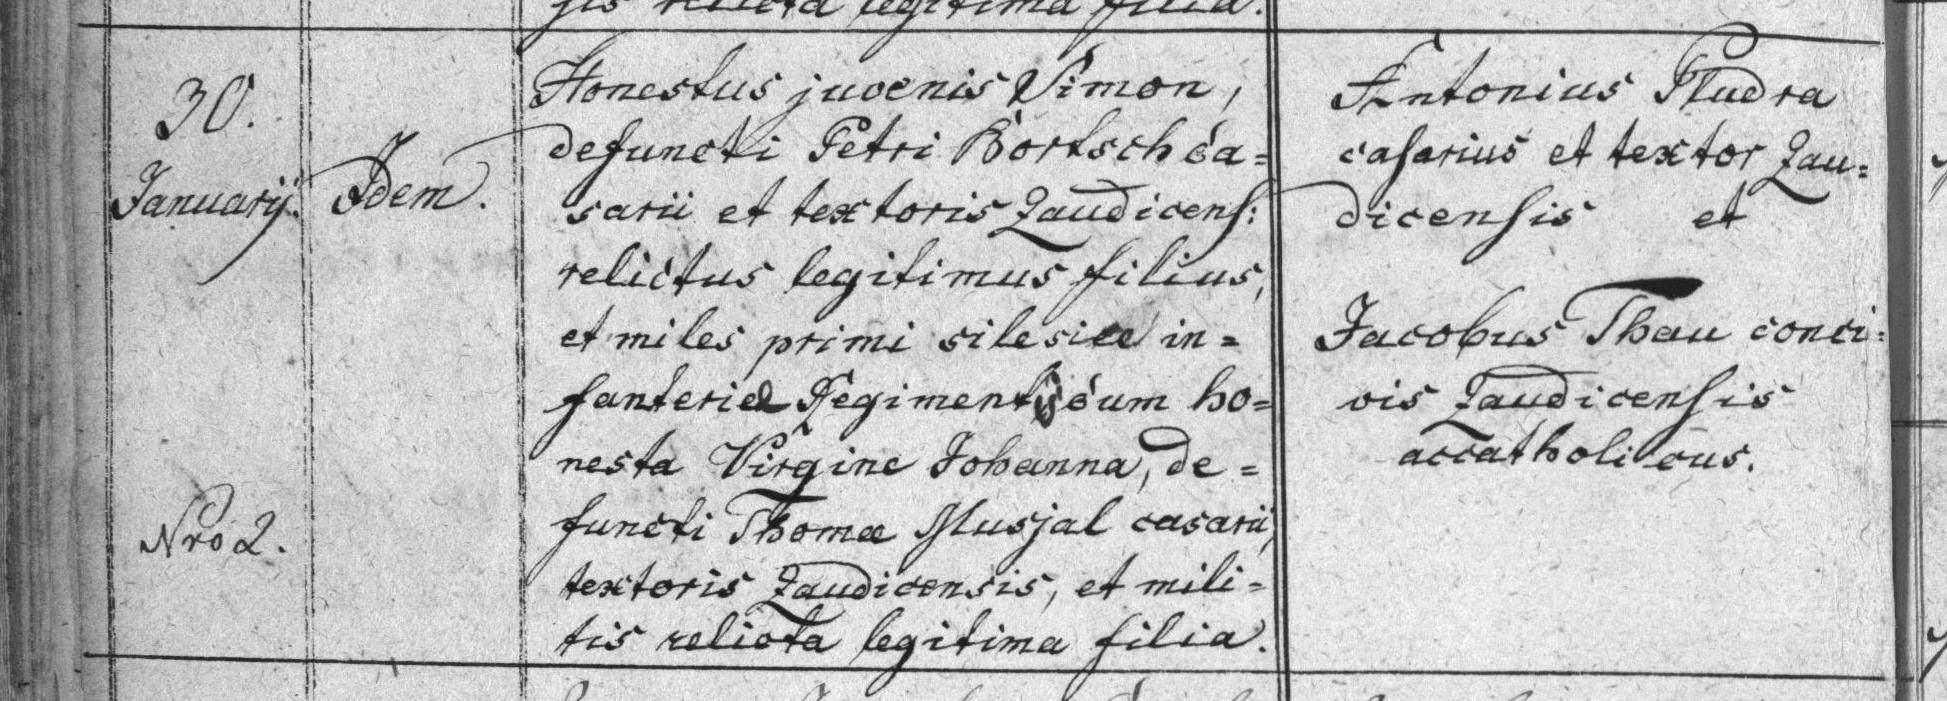 sis relicta legitima filia.
30.
Januarij.
Nro 2.
Idem.
Honestus juvenis Simon,
defuncti Petri Bortsch ca=
sarii et textoris Zaudicens:
relictus legitimus filius,
et miles primi silesiae in=
fanteriae Regimenti cum ho=
nesta Virgine Johanna, de=
functi Thomae Musjal casarii,
textoris Zaudicensis, et mili=
tis relicta legitima filia.
Antonius Pludra
casarius et textor Zau=
dicensis et
Jacobus Thau conci=
vis Zaudicensis
accatholicus.